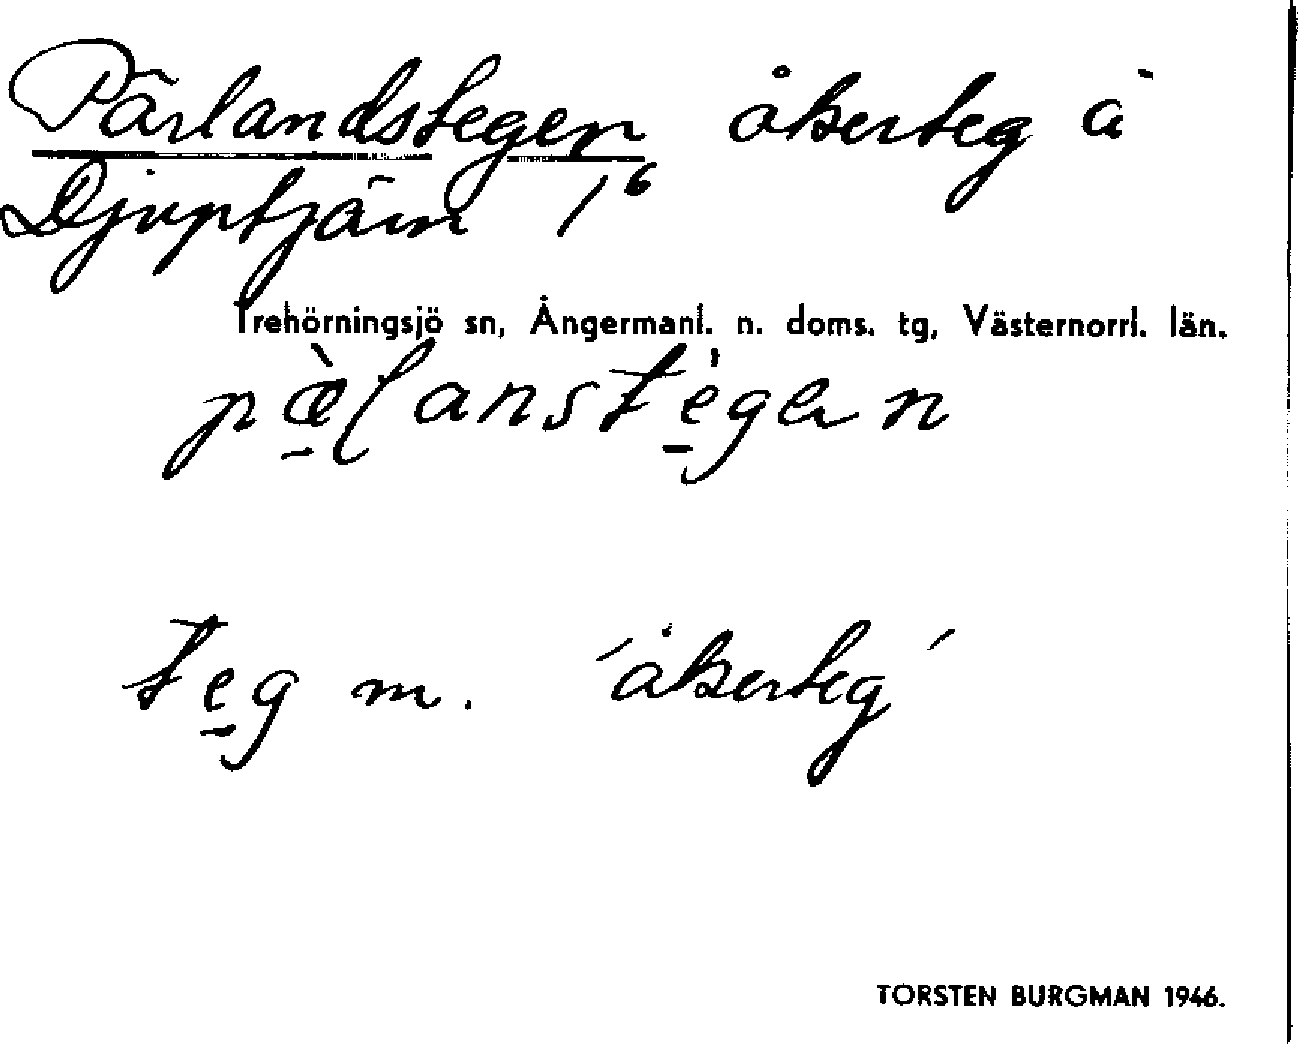 Pärlandstegen åkerteg å
Djuptjärn 1⁶
Trehörningsjö sn, Ångermanl. n. doms. tg, Västernorrl. län.
pæ̠̀ɭanste̠̍gen
te̠g m. 'åkerteg'
TORSTEN BURGMAN 1946.